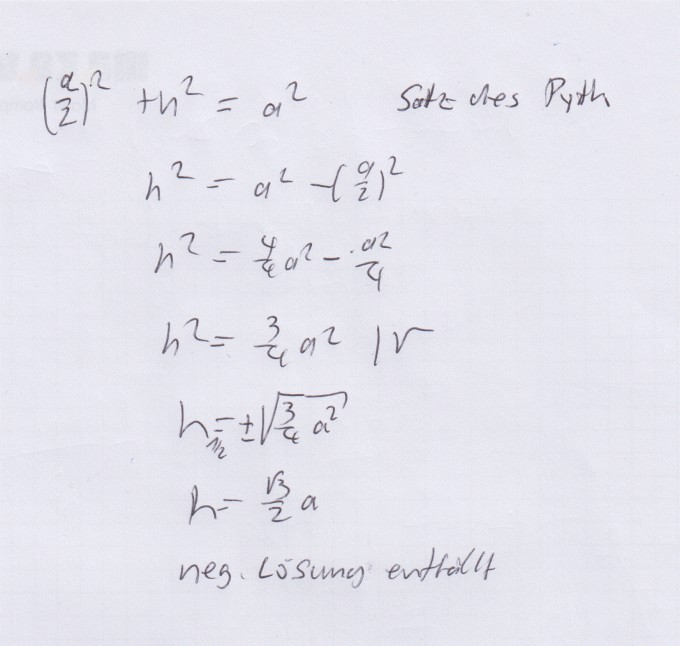 (a/2)² + h² = a² Satz des Pyth
h² = a² - (a/2)²
h² = 4/4 a² - a²/4
h² = 3/4 a² |√
h₁/₂ = ±√(3/4 a²)
h = √3/2 a
neg. Lösung entfällt